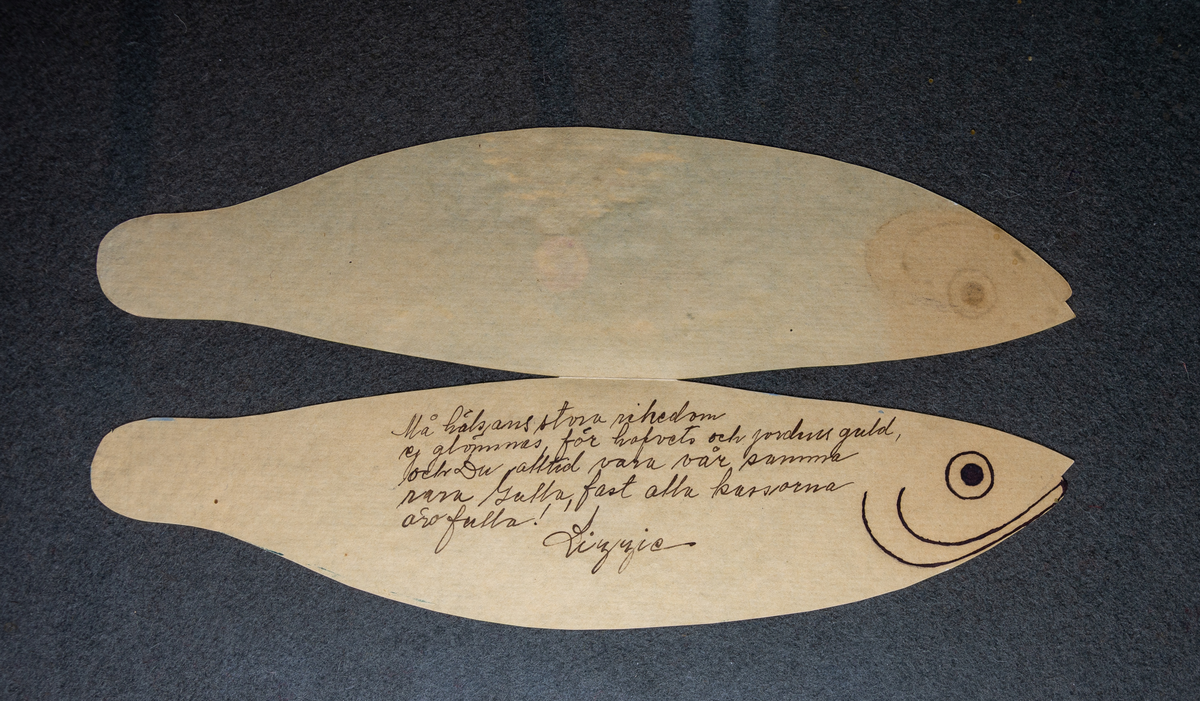 Må hälsans stora rikedom
ej glömmas, för hafvets och jordens guld,
och Du alltid vara vår samma
rara Gulla, fast alla kassorna
äro fulla!
Lizzie